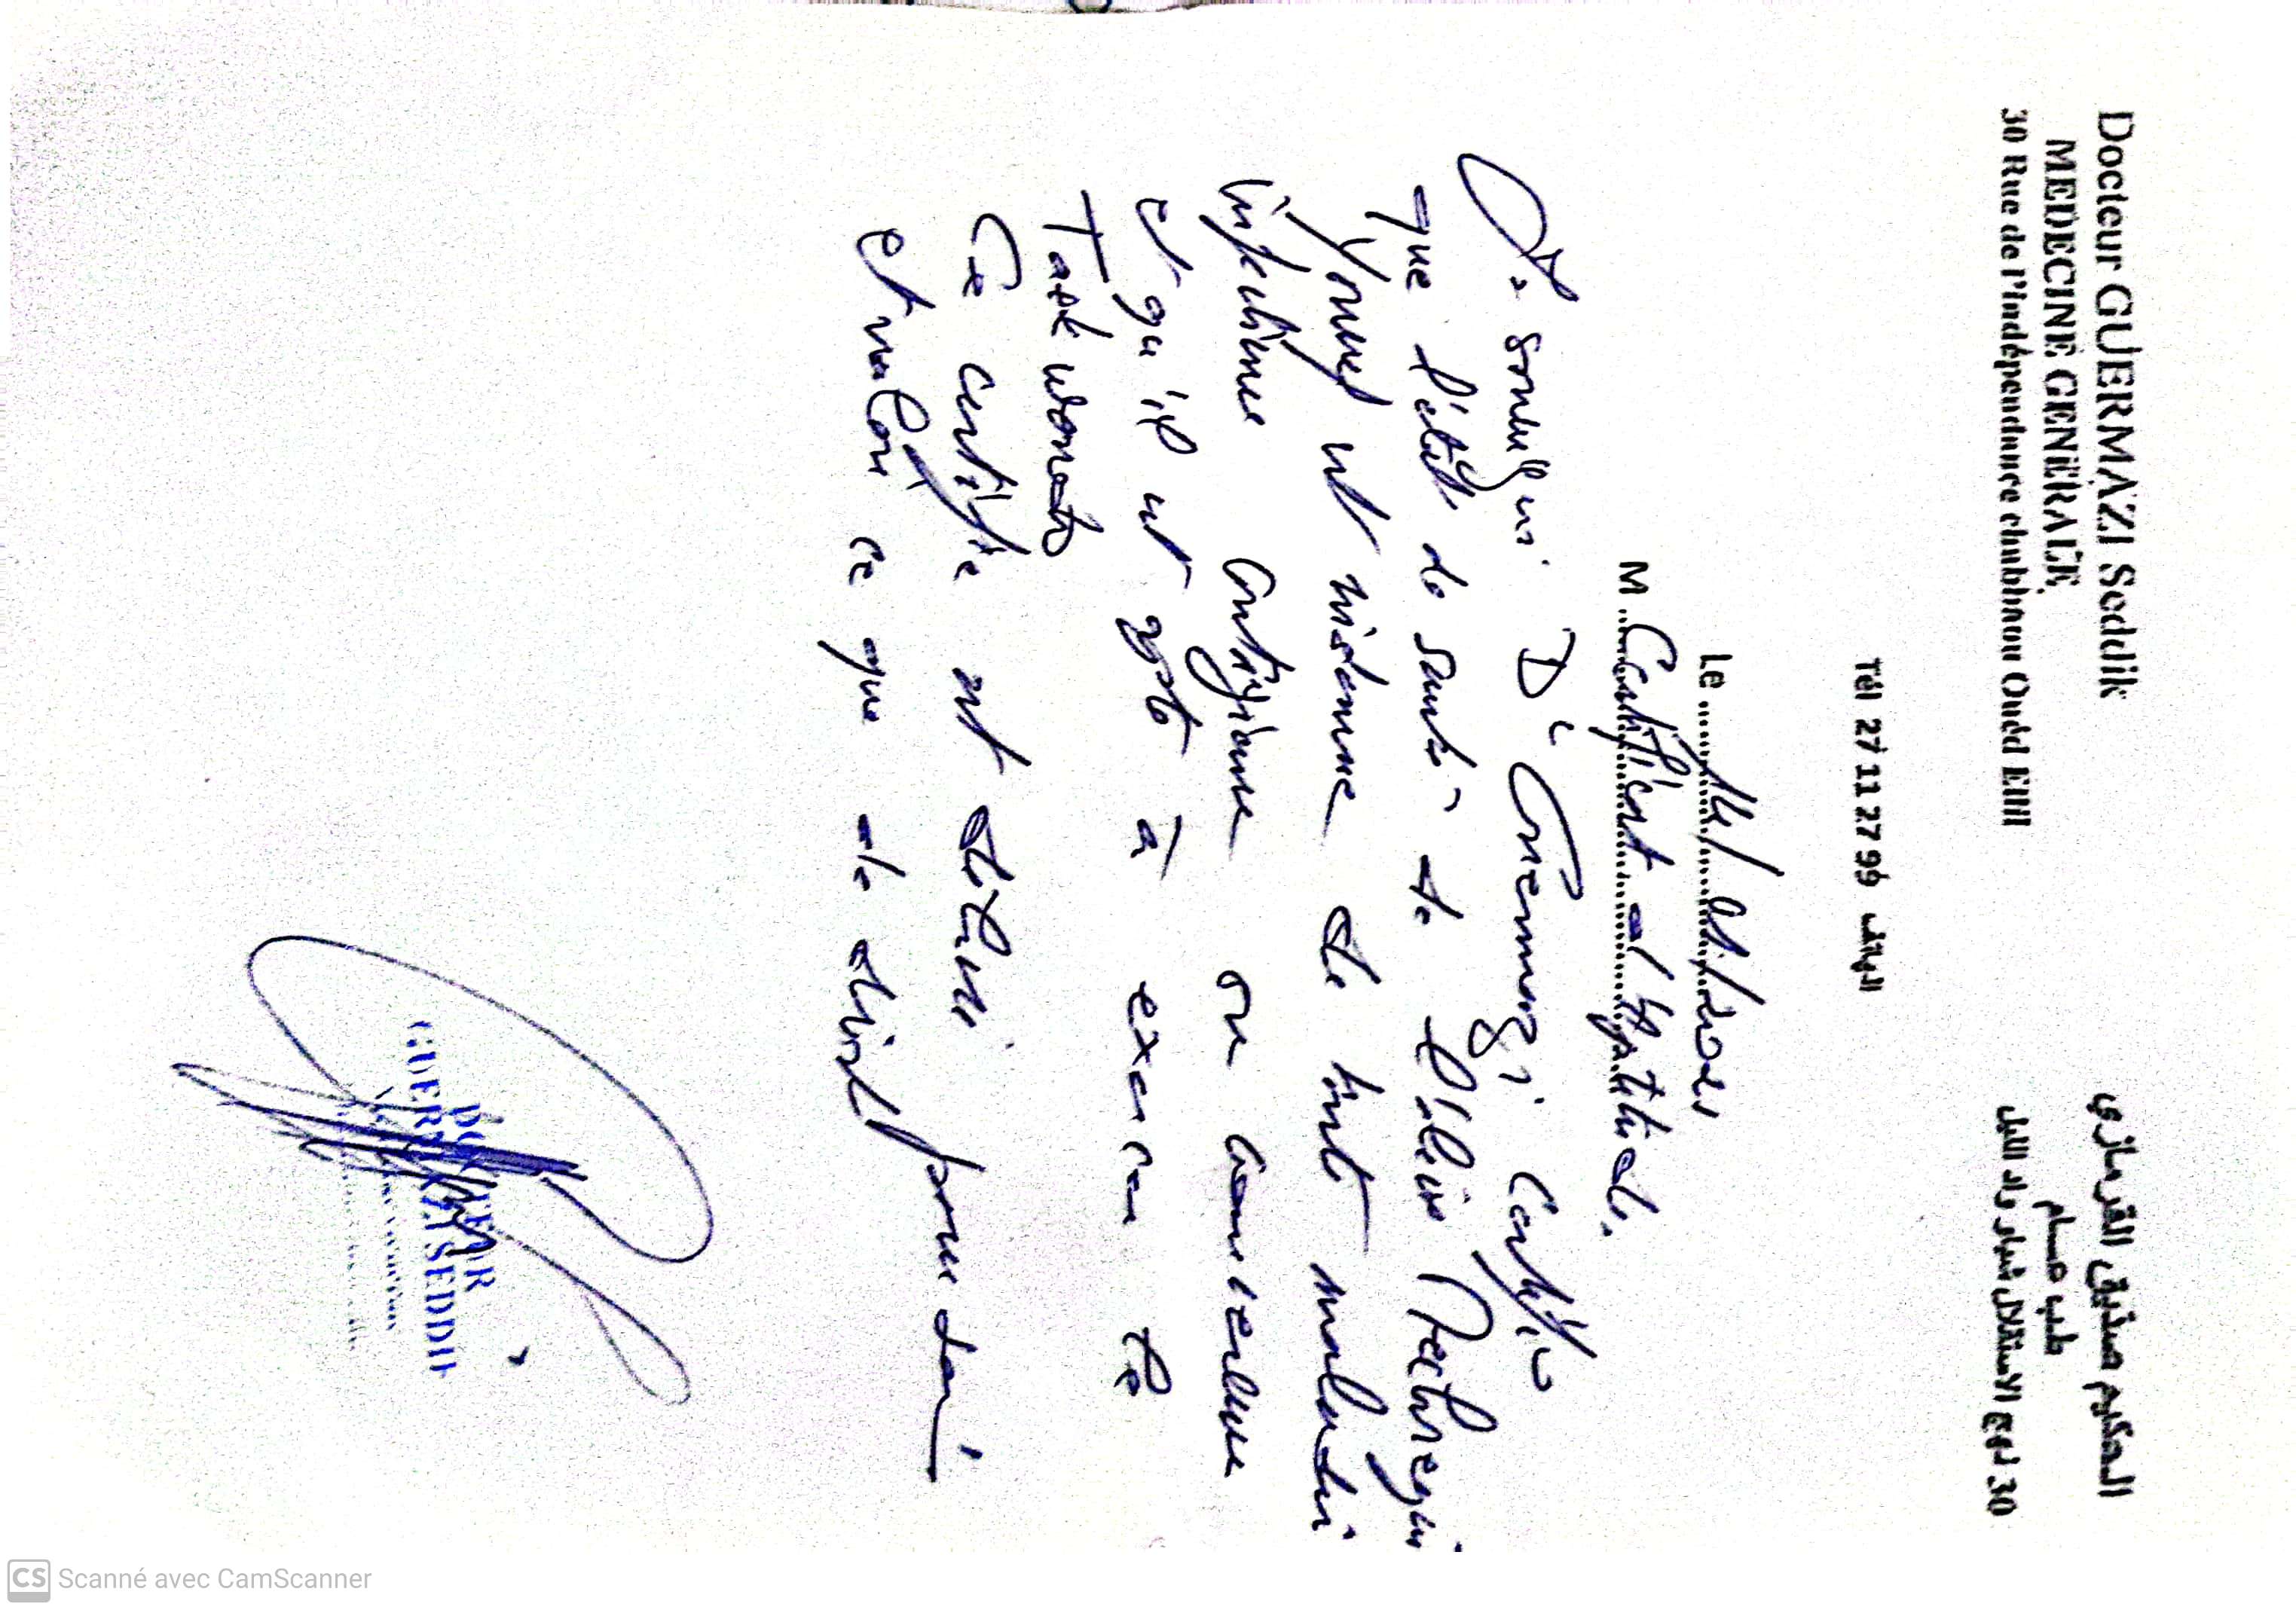 Docteur GUERMAZI Seddik
MEDECINE GENERALE
30 Rue de l'indépendance chabbaou Oued Ellil
الحكيم صديق القرمازي
طب عام
30 نهج الاستقلال شباو واد الليل
Tél 27 11 27 99 الهاتف
Le
M Certificat d'Aptitude.
Je soussigné Dr Guermazi Certifie
que l'état de santé de
est indemne de toute maladie
infectieuse Contagieuse ou
et qu'il est apte à exercer le
Taekwondo
Ce certifie est délivré pour servir
et valoir ce que de droit
DOCTEUR
GUERMAZI SEDDIK
CS Scanné avec CamScanner